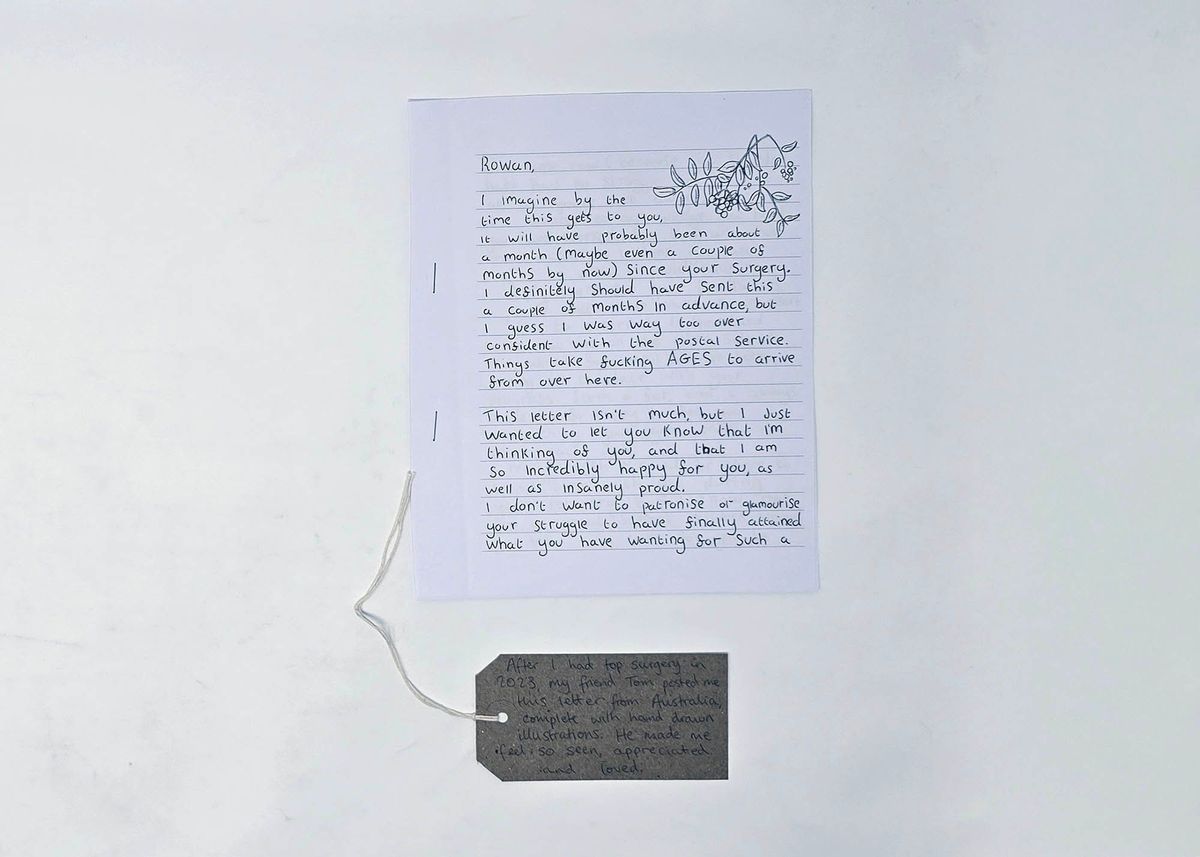 Rowan,
I imagine by the
time this gets to you,
it will have probably been about
a month (maybe even a couple of
months by now) since your surgery.
I definitely should have sent this
a couple of months in advance, but
I guess I was way too over
confident with the postal service.
Things take fucking AGES to arrive
from over here.
This letter isn't much, but I just
wanted to let you know that I'm
thinking of you, and that I am
so incredibly happy for you, as
well as insanely proud.
I don't want to patronise or glamourise
your struggle to have finally attained
what you have wanting for such a
After I had top surgery in
2023, my friend Tom posted me
this letter from Australia,
complete with hand drawn
illustrations. He made me
feel so seen, appreciated
and loved.